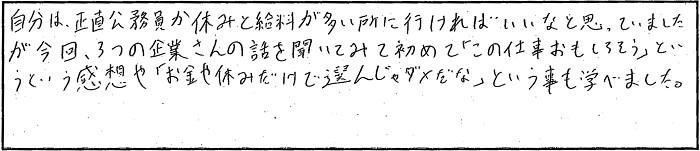 自分は、正直公務員か休みと給料が多い所に行ければいいなと思っていました
が今回、3つの企業さんの話を聞いてみて初めて「この仕事おもしろそう」とい
うという感想や「お金や休みだけで選んじゃダメだな」という事も学べました。